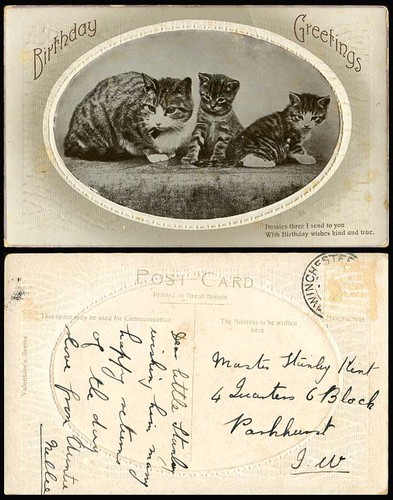 Birthday Greetings
Pussies three I send to you
With Birthday wishes kind and true.
POST CARD
Printed in Great Britain
This space may be used for Communication
The Address to be written
here
Valentine's Series
WINCHESTER
Dear little Stanley
wishing him many
happy returns
of the day
love from Auntie
Nellie
Master Stanley Kent
4 Quarters C Block
Parkhurst
I. W